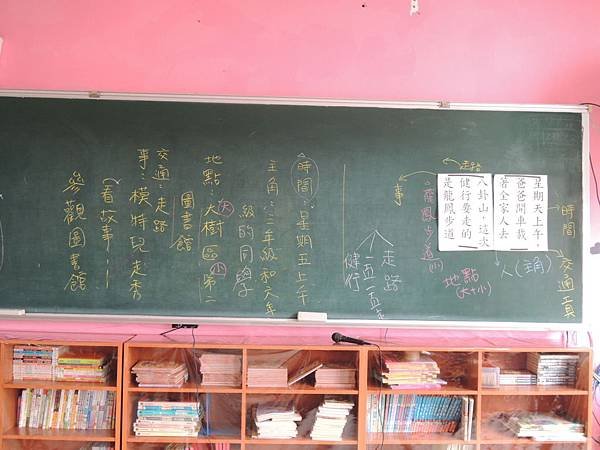 時間
交通工具
星期天上午,
爸爸開車載
著全家人去
八卦山,這次
健行要走的
是龍鳳步道
走路
人(主角)
地點
(大+小)
事
走路
健行
時間:星期五上午
主角:三年級和六年
級的同學
地點:大樹區第二
大
小
圖書館
交通:走路
事:模特兒走秀
看故事
參觀圖書館